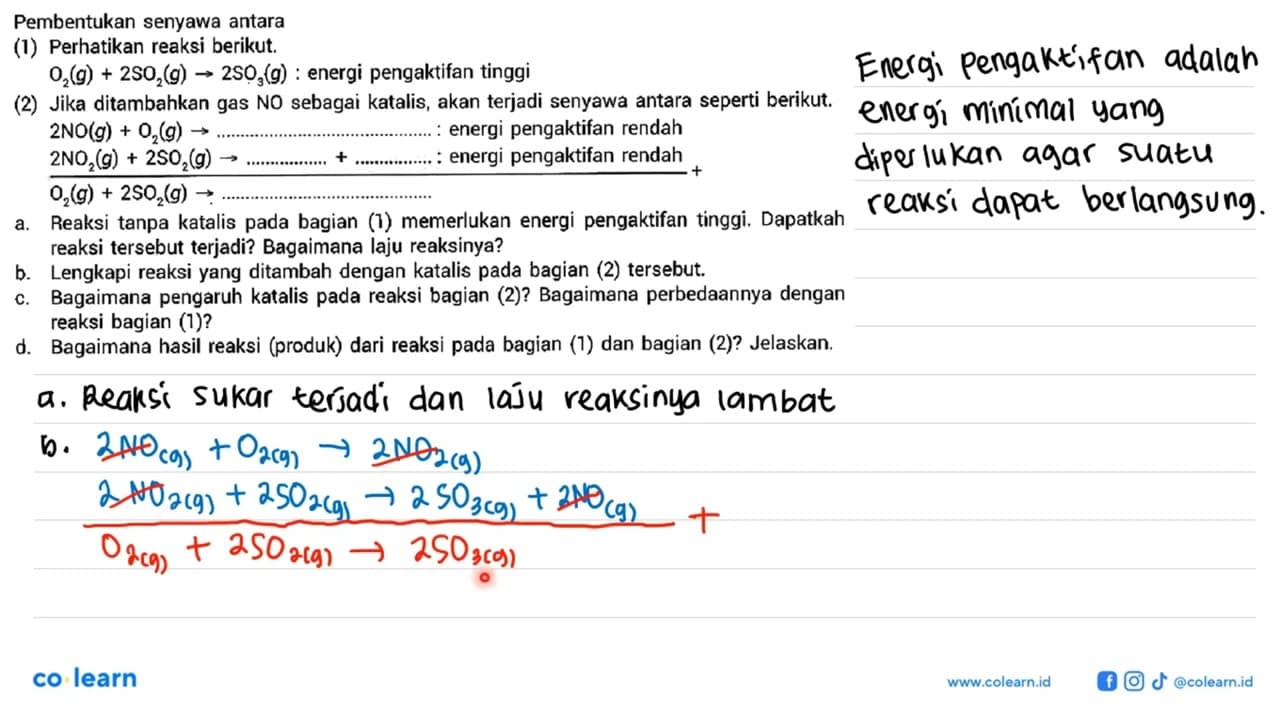 Pembentukan senyawa antara
(1) Perhatikan reaksi berikut.
O₂(g) + 2SO₂(g) → 2SO₃(g) : energi pengaktifan tinggi
(2) Jika ditambahkan gas NO sebagai katalis, akan terjadi senyawa antara seperti berikut.
2NO(g) + O₂(g) → ...................................... : energi pengaktifan rendah
2NO₂(g) + 2SO₂(g) → ................ + ............... : energi pengaktifan rendah
+
O₂(g) + 2SO₂(g) → ......................................
a. Reaksi tanpa katalis pada bagian (1) memerlukan energi pengaktifan tinggi. Dapatkah
reaksi tersebut terjadi? Bagaimana laju reaksinya?
b. Lengkapi reaksi yang ditambah dengan katalis pada bagian (2) tersebut.
c. Bagaimana pengaruh katalis pada reaksi bagian (2)? Bagaimana perbedaannya dengan
reaksi bagian (1)?
d. Bagaimana hasil reaksi (produk) dari reaksi pada bagian (1) dan bagian (2)? Jelaskan.
Energi pengaktifan adalah
energi minimal yang
diperlukan agar suatu
reaksi dapat berlangsung.
a. Reaksi sukar terjadi dan laju reaksinya lambat
b. 2NO(g) + O₂(g) → 2NO₂(g)
2NO₂(g) + 2SO₂(g) → 2SO₃(g) + 2NO(g)
+
O₂(g) + 2SO₂(g) → 2SO₃(g)
co learn
www.colearn.id
@colearn.id